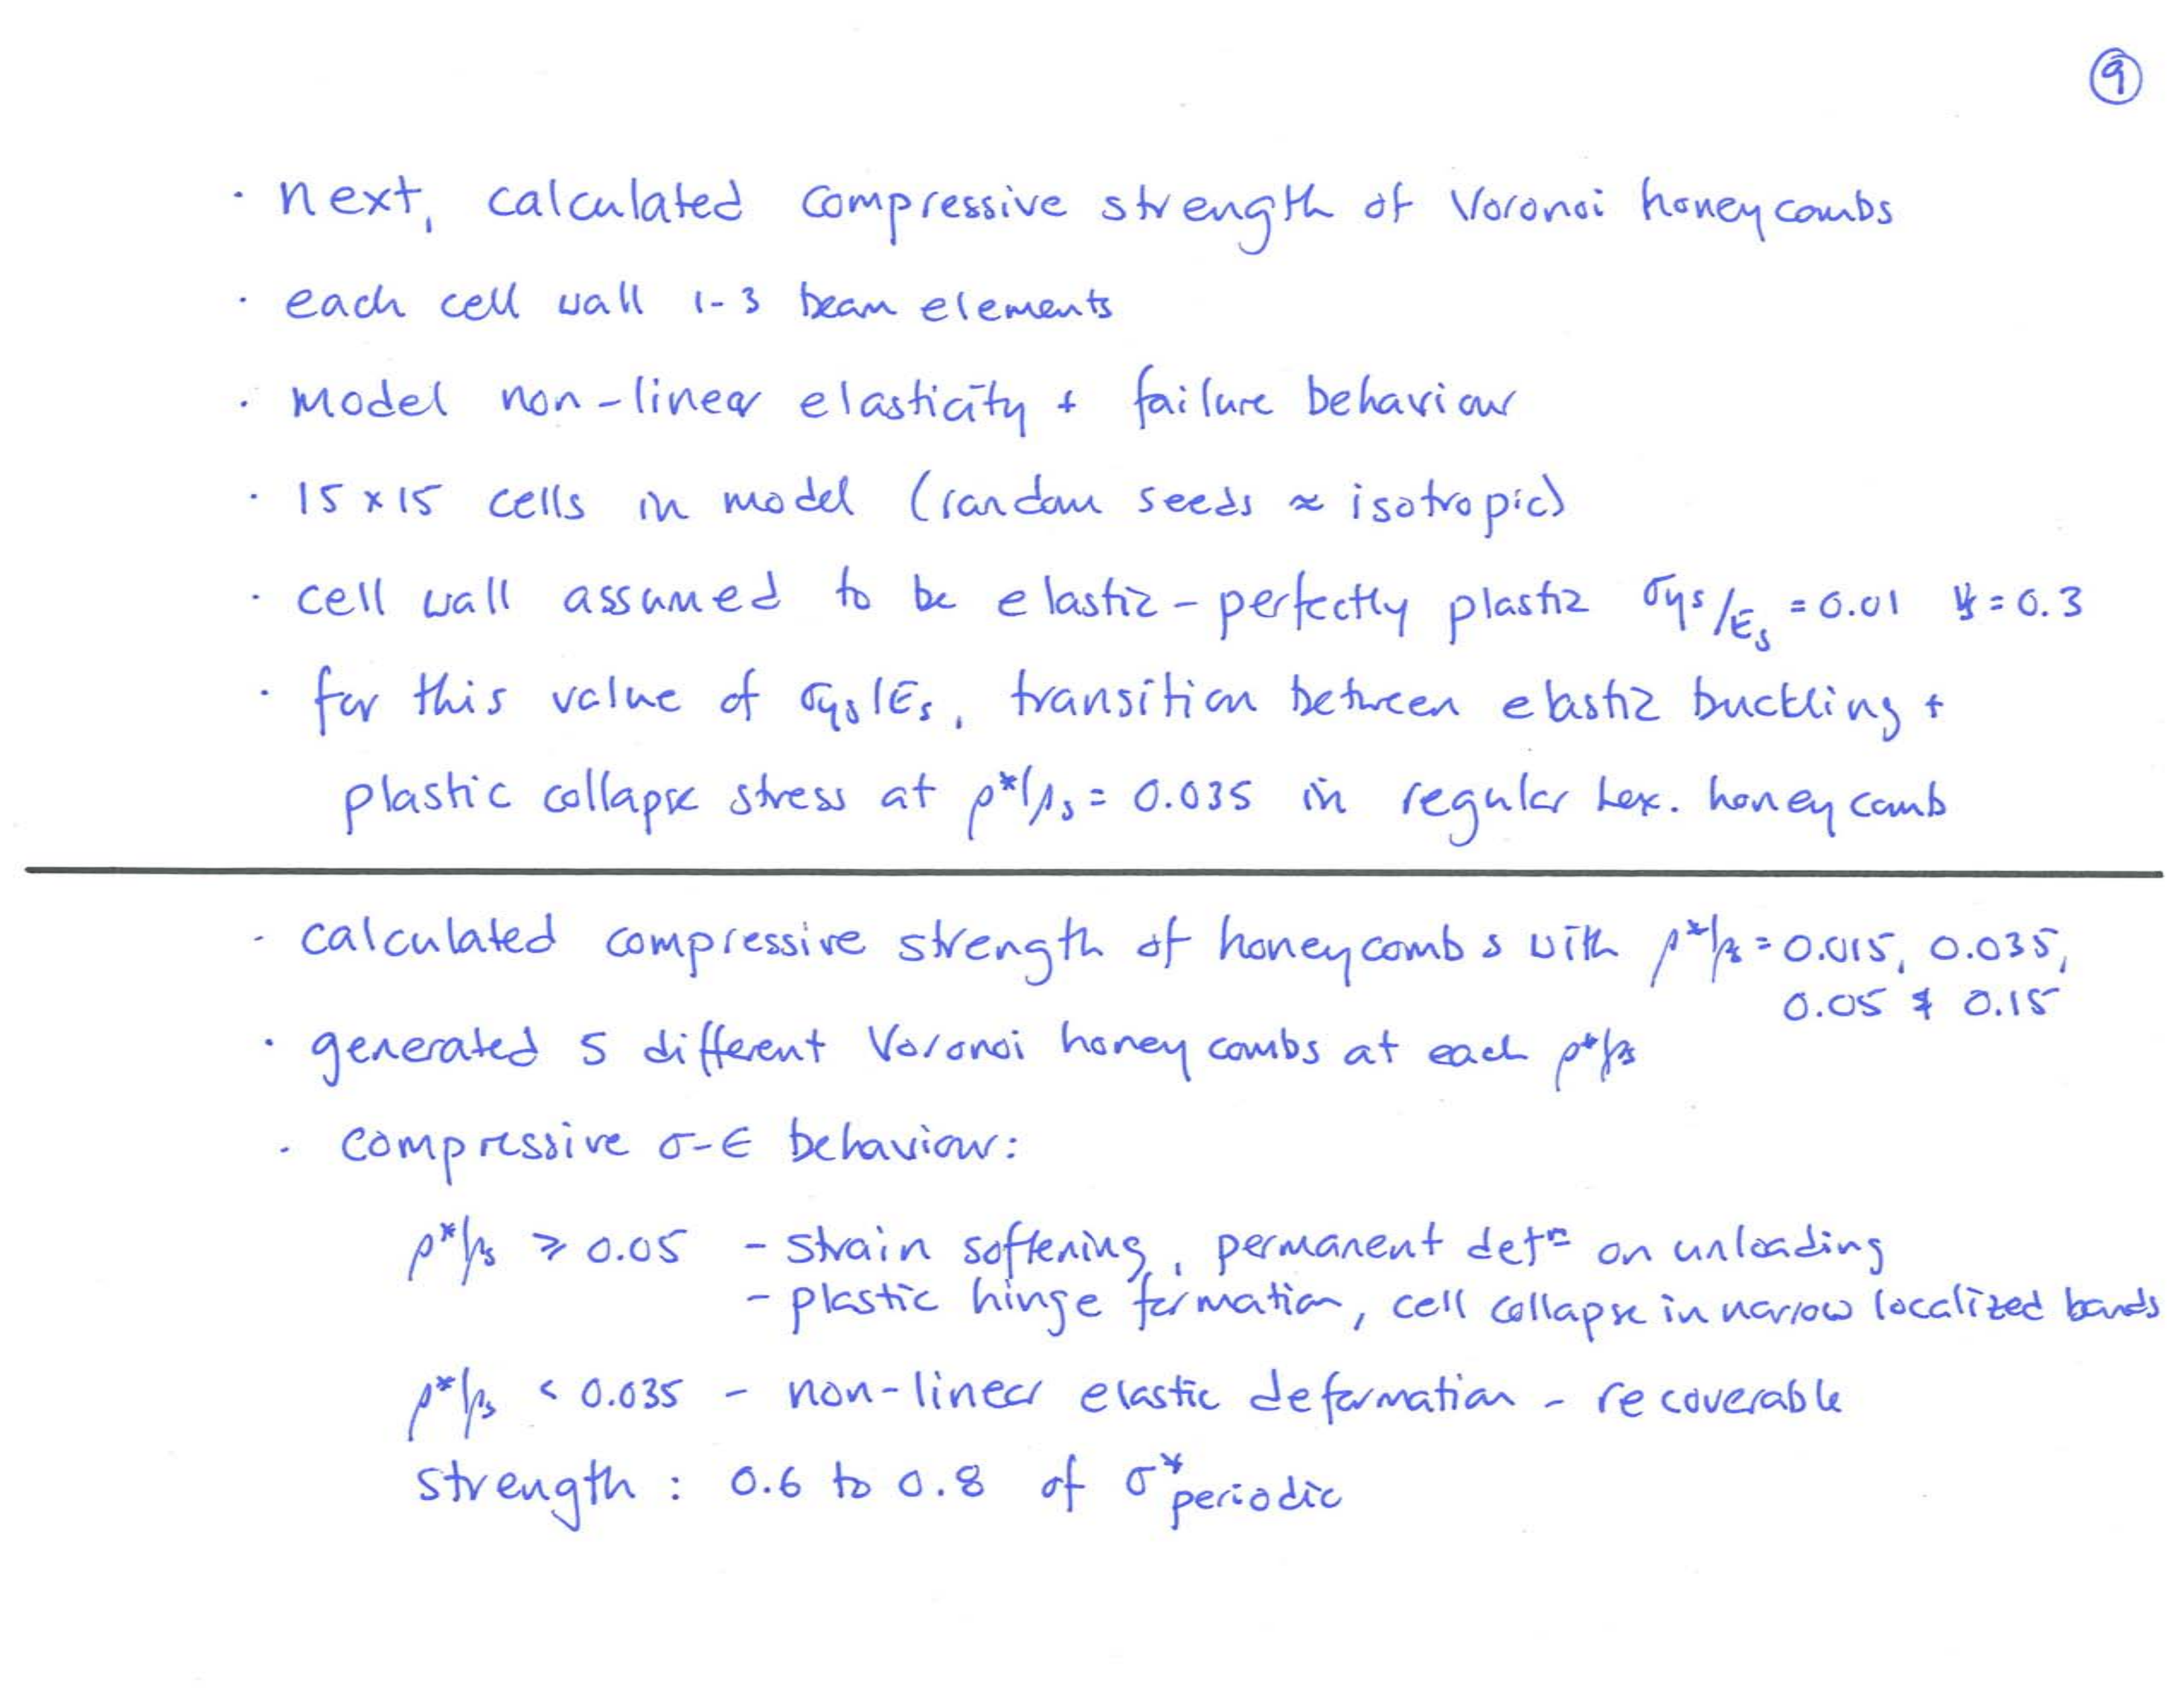 9
· next, calculated compressive strength of Voronoi honeycombs
· each cell wall 1-3 beam elements
· model non-linear elasticity + failure behaviour
· 15 × 15 cells in model (random seeds ≈ isotropic)
· cell wall assumed to be elastic - perfectly plastic σys/Es = 0.01 νs = 0.3
· for this value of σys/Es, transition between elastic buckling +
plastic collapse stress at ρ*/ρs = 0.035 in regular hex. honeycomb
· calculated compressive strength of honeycombs with ρ*/ρs = 0.015, 0.035,
0.05 & 0.15
· generated 5 different Voronoi honeycombs at each ρ*/ρs
· compressive σ-ε behaviour:
ρ*/ρs ≥ 0.05 - strain softening, permanent defⁿ on unloading
- plastic hinge formation, cell collapse in narrow localized bands
ρ*/ρs < 0.035 - non-linear elastic deformation - recoverable
strength : 0.6 to 0.8 of σ*periodic